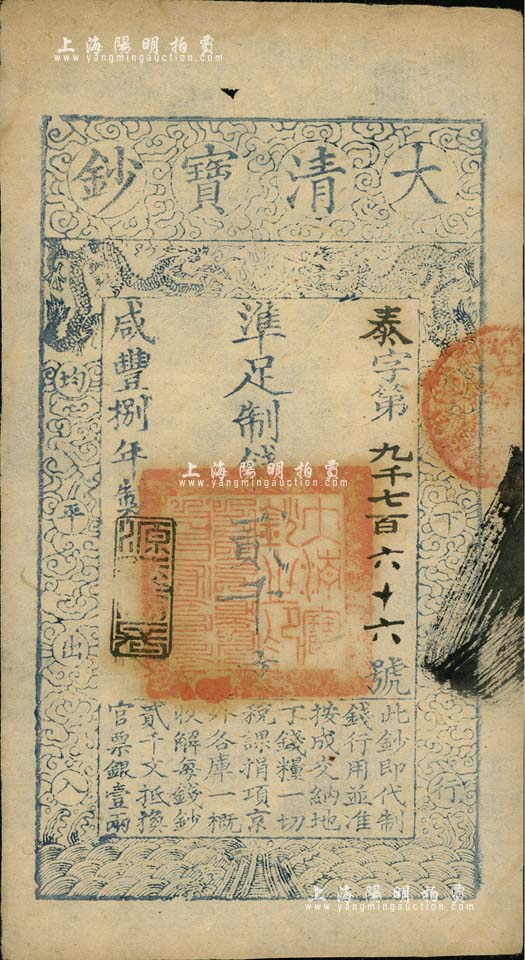 上海陽明拍賣
www.yangmingauction.com
大清寶鈔
泰字第九千七百六十六號
準足制錢貳千文
咸豐捌年製
上海陽明拍賣
www.yangmingauction.com
均平出入
下行
此鈔即代制
錢行用並准
按成交納地
丁錢糧一切
稅課捐項京
外各庫一概
收解每錢鈔
貳千文抵換
官票銀壹兩
上海陽明拍賣
www.yangmingauction.com